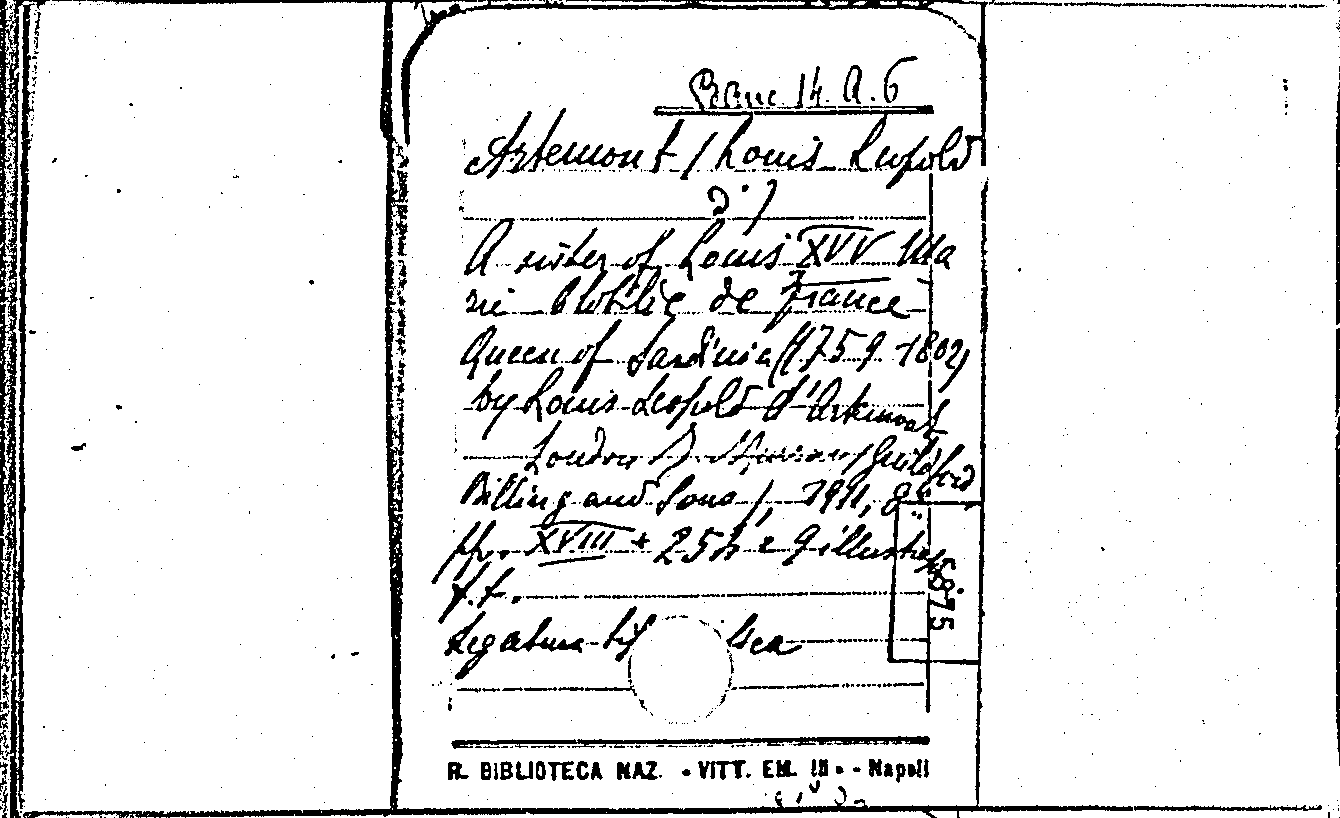 Banc 14. A. 6
Artemont (Louis Leopold
d')
A sister of Louis XVI Ma
rie Clotilde de France
Queen of Sardinia (1759-1802)
by Louis Leopold d'Artemont
London J. Murray (Guildford
Billing and Sons), 1911, 8°
pp. XVIII + 254 e 9 illustraz.
f.t.
Legatura
R. BIBLIOTECA NAZ. - VITT. EM. III - - Napoli
5875